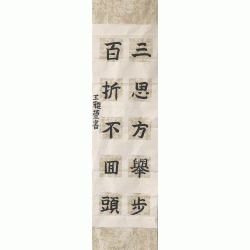 三思方舉步
百折不回頭